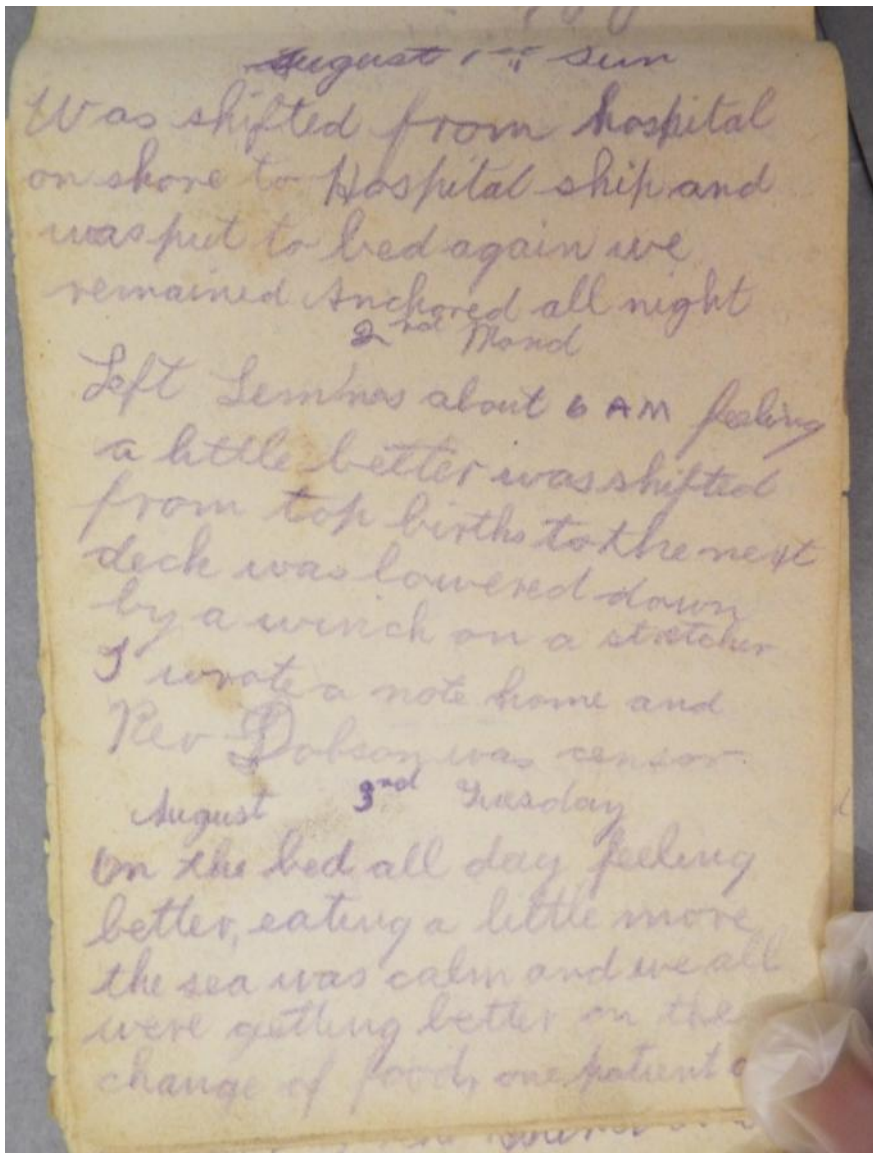 August 1st Sun
Was shifted from hospital
on shore to Hospital ship and
was put to bed again we
remained Anchored all night
2nd Mond
Left Lemnos about 6 AM feeling
a little better was shifted
from top births to the next
deck was lowered down
by a winch on a stretcher
I wrote a note home and
Rev Dobson was censor.
August 3rd Tuesday
On the bed all day feeling
better, eating a little more
the sea was calm and we all
were getting better on the
change of food, one patient